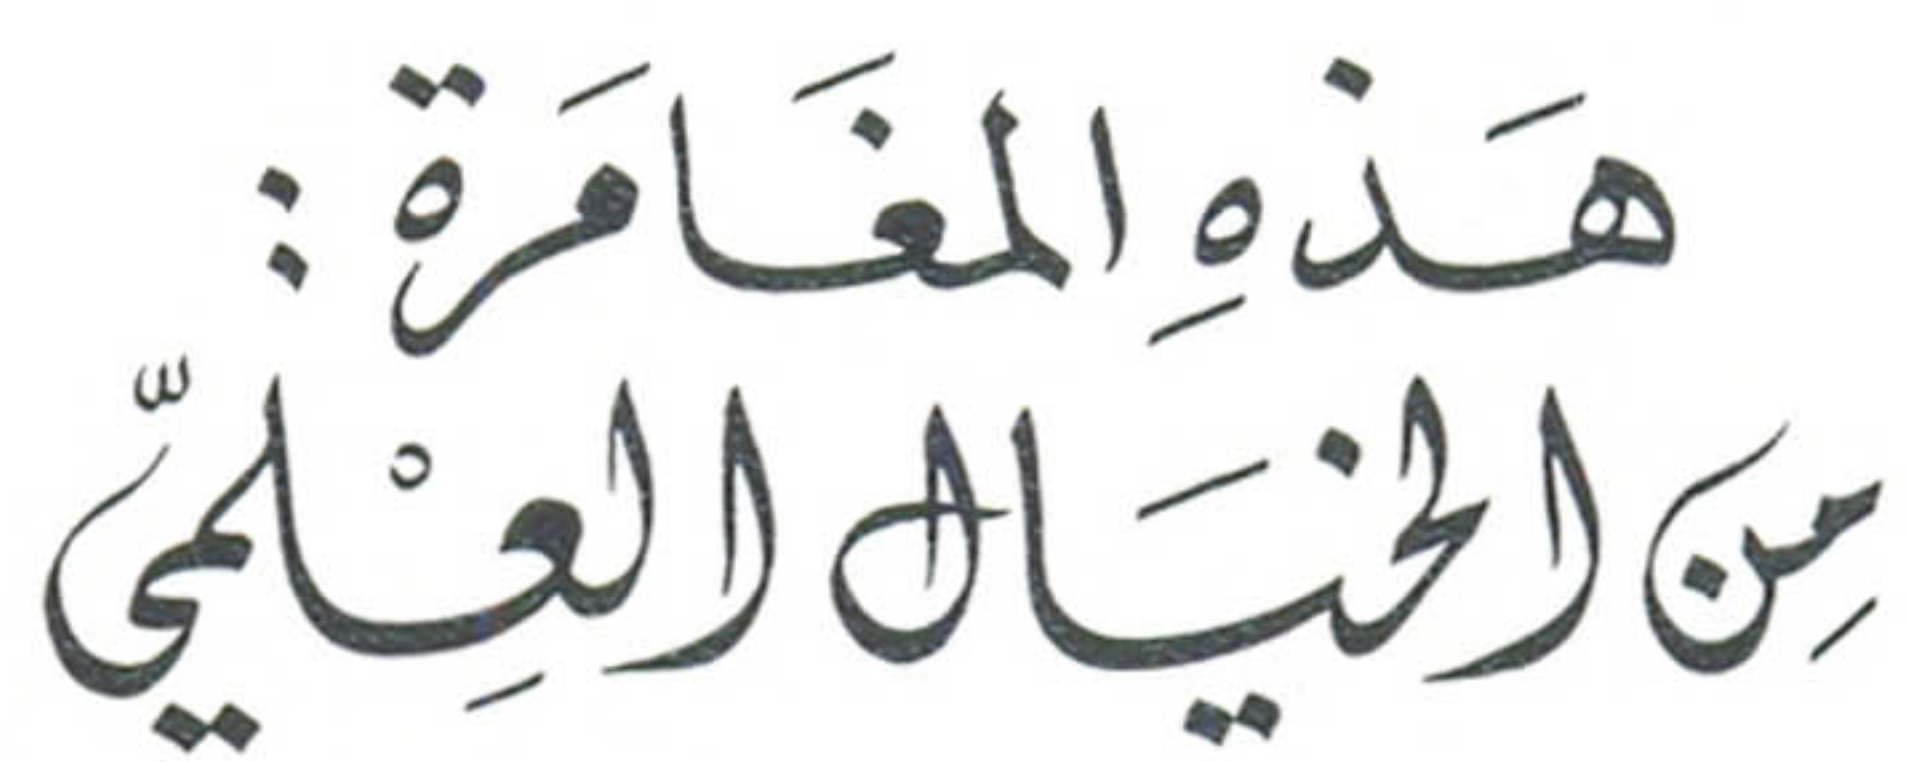 هَذهِ المغَامَرة :
مِن الخيَال العِلْميّ